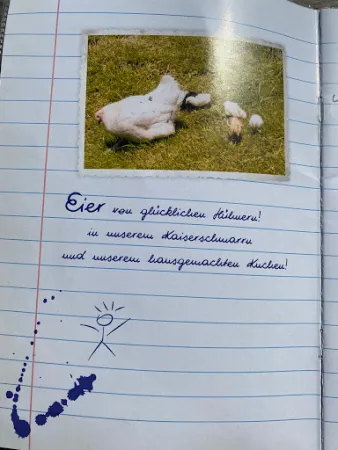 Eier von glücklichen Hühnern!
in unserem Kaiserschmarrn
und unserem hausgemachten Kuchen!